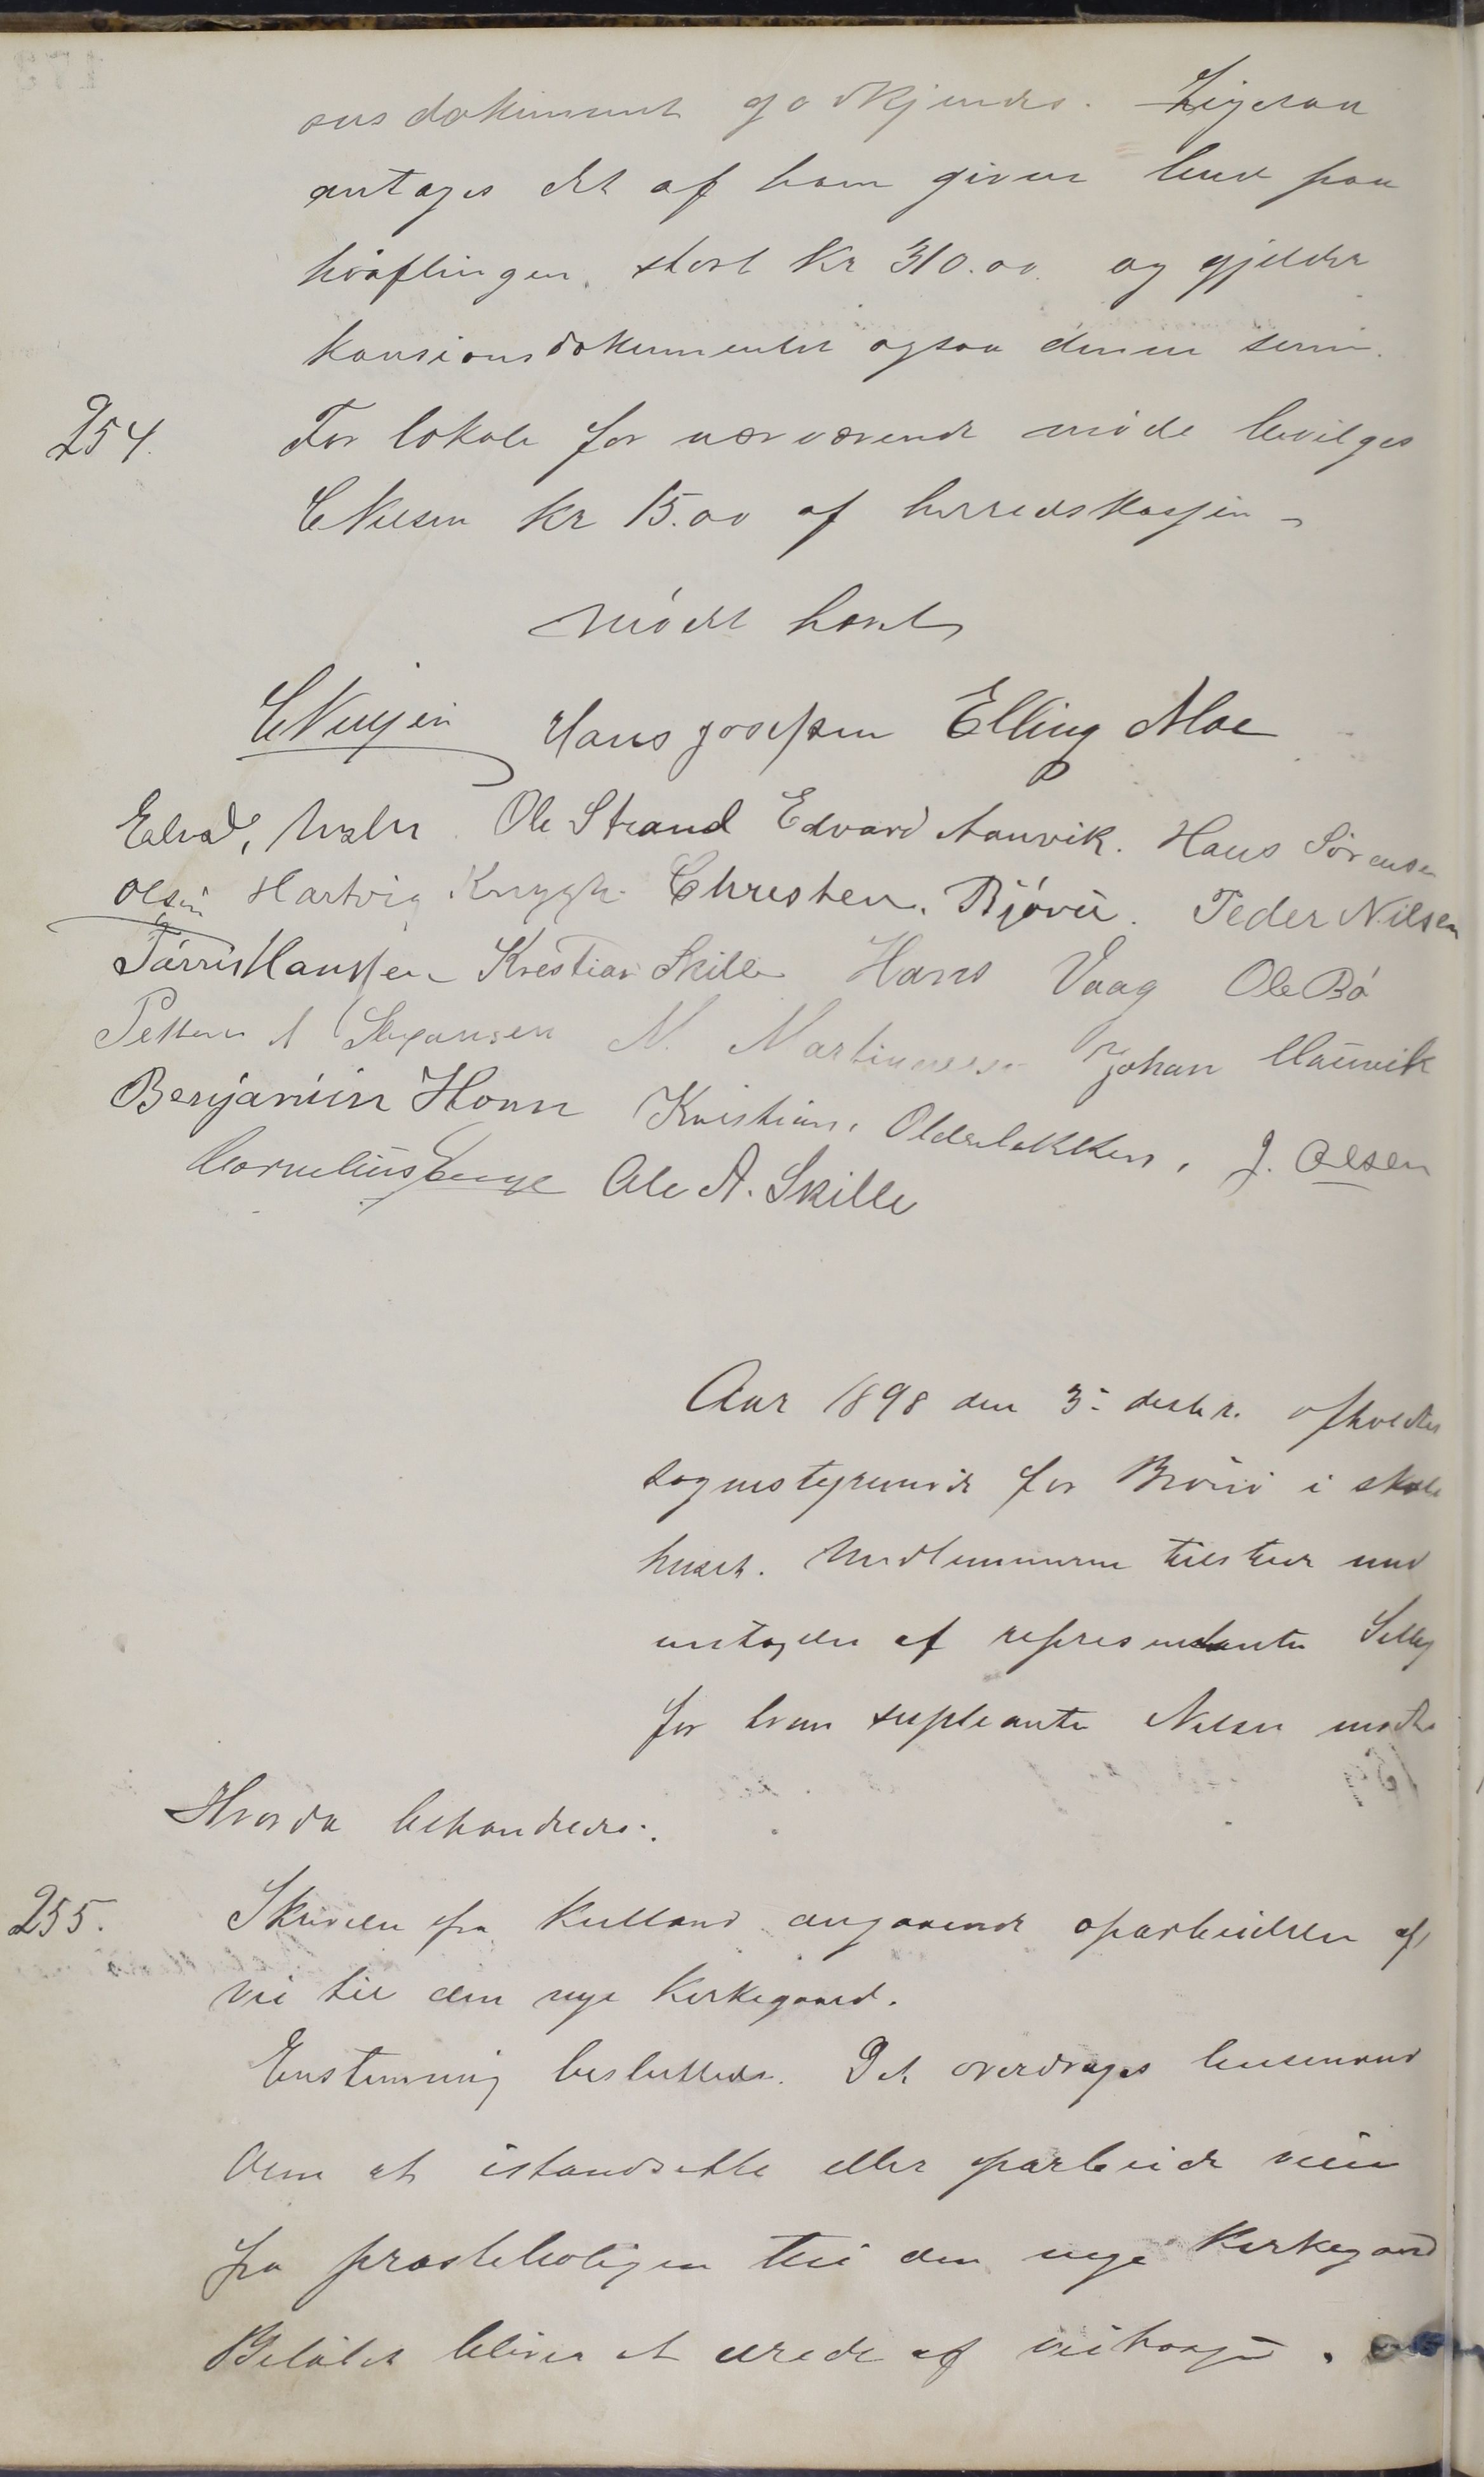 onsdokument godkjendes. Ligesaa
antages det af ham given bud paa
kistingen, stort Kr 310.00 og gjelder
kausionsdokumentet ogsaa denne sum.
254. For lokale for nærværende møde bevilges
CNilsen Kr 15.00 af herredskassen
Mødet hævet
CNilsen Hans Josefsen Elling Moe
Edvard, Ole Strand Edvard Aanvik. Hans Sørensen
Olsen Hartvig Knygh Christen. Bjøru. Peder Nilsen
Tørris Hanssen Krestian Skille Hans Vaag Ole Bø
Petter A Jørgensen N. Martinussen Johan Maŭnvik
Benjamin Horn Kristian. Olderbakken. J. Olsen
Cornelius Ole A. Skille
Aar 1898 den 3- desbr. afholdtes
sognestyremøde for Brønø i skole
huset. Medlemmerne tilstede med
untagelse af representanten Selly
for ham supleanten Nilsen mødte
Hvorda behandledes:
255. Skrivelse fra Kielland angaaende oparbeidelse af
vei til den nye Kirkegaard.
Enstemmig besluttedes. Det overdrages lensmand
Dem at istandsætte eller oparbeide veien
fra prosteboligen til den nye Kirkegaard
Beløbet bliver at utrede af veikassen.